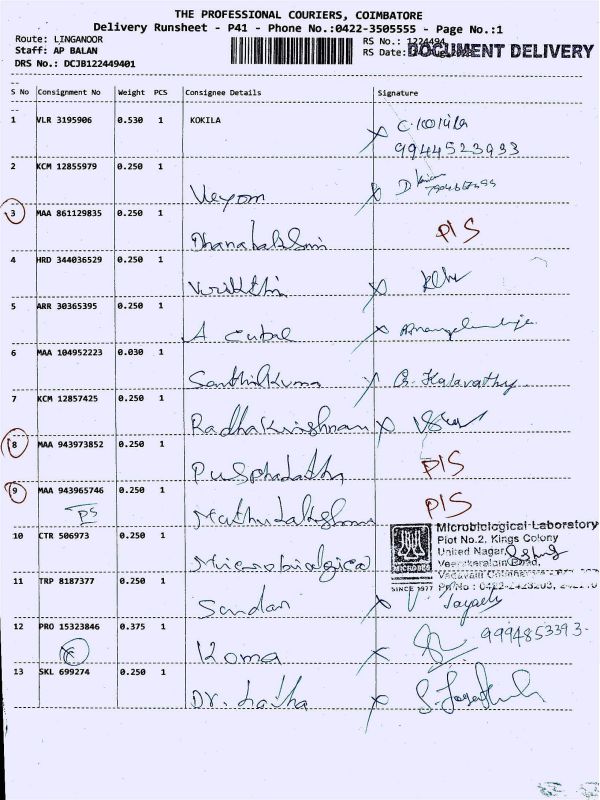 THE PROFESSIONAL COURIERS, COIMBATORE
Delivery Runsheet - P41 - Phone No.:0422-3505555 - Page No.:1
Route: LINGANOOR RS No.: 1224494
Staff: AP BALAN RS Date: DOCUMENT DELIVERY
DRS No.: DCJB122449401
S No Consignment No Weight PCS Consignee Details Signature
1 VLR 3195906 0.530 1 KOKILA C. Kokila
9944523933
2 KCM 12855979 0.250 1 Veyom
3 MAA 861129835 0.250 1 Dhanalakshmi PIS
4 HRD 344036529 0.250 1
5 ARR 30365395 0.250 1 A
6 MAA 104952223 0.030 1 Santhilkumar G. Kalavathy
7 KCM 12857425 0.250 1 Radhakrishnan
8 MAA 943973852 0.250 1 Pusphalatha PIS
9 MAA 943965746 0.250 1 Muthulakshma PIS
PS
Microbiological Laboratory
Plot No.2, Kings Colony
10 CTR 506973 0.250 1 Microbiological United Nagar,
Veerakeralam Road,
11 TRP 8187377 0.250 1 Sandan
SINCE 1977
12 PRO 15323846 0.375 1 Koma 9994853393
13 SKL 699274 0.250 1 Dr. Latha